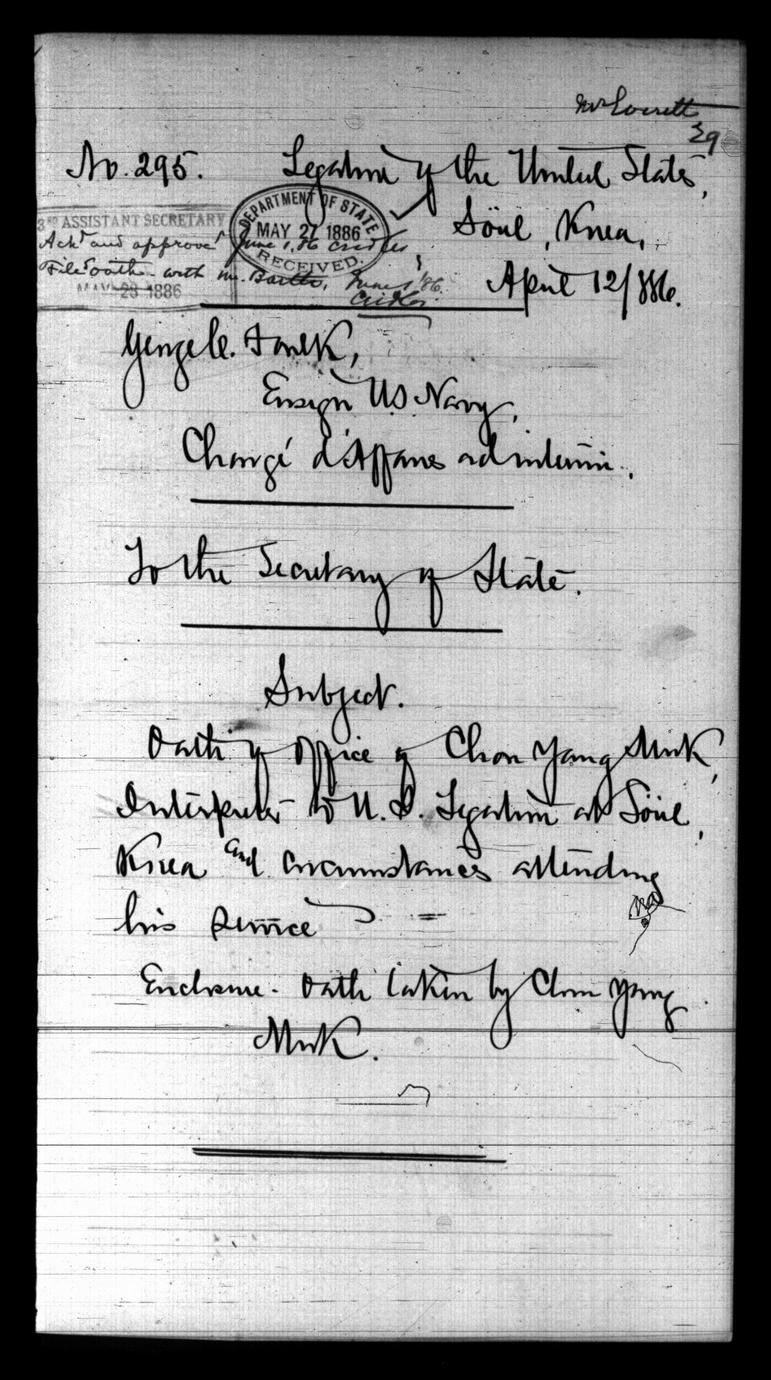 Mr Everett
29
No. 295. Legation of the United States,
Söul, Korea,
April 12/886.
3RD ASSISTANT SECRETARY
Ackd and approved June 1, 86
File oath with Mr. June 1, '86.
MAY 28 1886
DEPARTMENT OF STATE
MAY 27 1886
RECEIVED.
George C. Foulk,
Ensign U.S. Navy,
Chargé d'Affaires ad interim.
To the Secretary of State.
Subject.
Oath of office of Chon Yang Muk,
Interpreter to U.S. Legation at Söul,
Korea and circumstances attending
his service
Enclosure. Oath taken by Chon Yang
Muk.